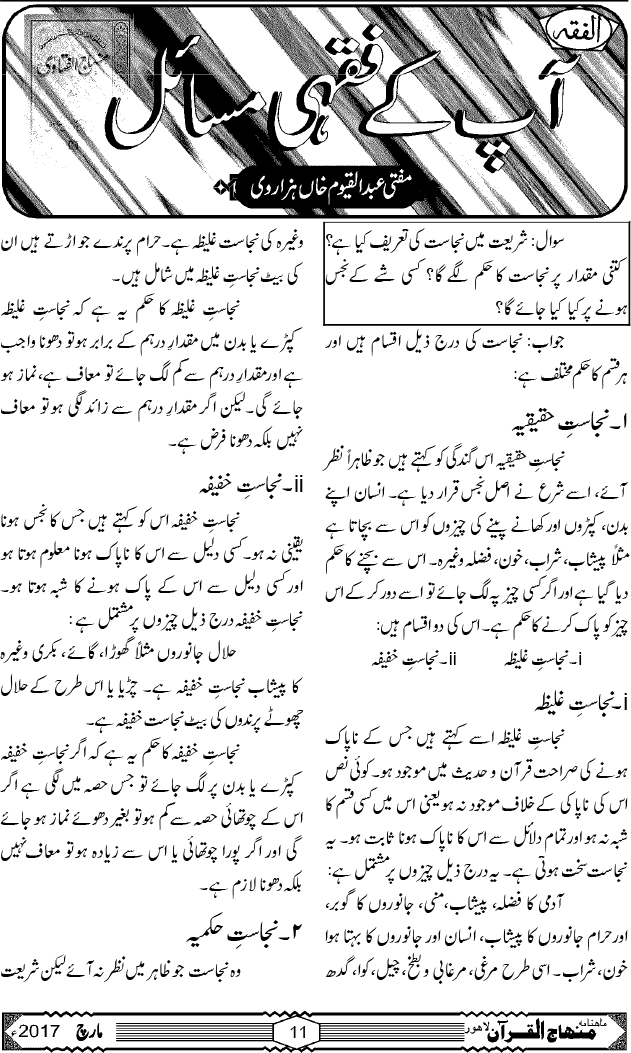 الفقہ
آپ کے فقہی مسائل
منہاج الفتاویٰ
مفتی عبدالقیوم خاں ہزاروی
سوال: شریعت میں نجاست کی تعریف کیا ہے؟
کتنی مقدار پر نجاست کا حکم لگے گا؟ کسی شے کے نجس
ہونے پر کیا کیا جائے گا؟
جواب: نجاست کی درج ذیل اقسام ہیں اور
ہر قسم کا حکم مختلف ہے:
۱۔ نجاستِ حقیقیہ
نجاستِ حقیقیہ اس گندگی کو کہتے ہیں جو ظاہراً نظر
آئے، اسے شرع نے اصل نجس قرار دیا ہے۔ انسان اپنے
بدن، کپڑوں اور کھانے پینے کی چیزوں کو اس سے بچاتا ہے
مثلاً پیشاب، شراب، خون، فضلہ وغیرہ۔ اس سے بچنے کا حکم
دیا گیا ہے اور اگر کسی چیز پہ لگ جائے تو اسے دور کر کے اس
چیز کو پاک کرنے کا حکم ہے۔ اس کی دو اقسام ہیں:
i۔ نجاستِ غلیظہ ii۔ نجاستِ خفیفہ
i۔ نجاستِ غلیظہ
نجاستِ غلیظہ اسے کہتے ہیں جس کے ناپاک
ہونے کی صراحت قرآن و حدیث میں موجود ہو۔ کوئی نص
اس کی ناپاکی کے خلاف موجود نہ ہو یعنی اس میں کسی قسم کا
شبہ نہ ہو اور تمام دلائل سے اس کا ناپاک ہونا ثابت ہو۔ یہ
نجاست سخت ہوتی ہے۔ یہ درج ذیل چیزوں پر مشتمل ہے:
آدمی کا فضلہ، پیشاب، منی، جانوروں کا گوبر،
اور حرام جانوروں کا پیشاب، انسان اور جانوروں کا بہتا ہوا
خون، شراب۔ اسی طرح مرغی، مرغابی و بطخ، چیل، کوا، گدھ
وغیرہ کی نجاست غلیظہ ہے۔ حرام پرندے جو اڑتے ہیں ان
کی بیٹ نجاستِ غلیظہ میں شامل ہیں۔
نجاستِ غلیظہ کا حکم یہ ہے کہ نجاستِ غلیظہ
کپڑے یا بدن میں مقدارِ درہم کے برابر ہو تو دھونا واجب
ہے اور مقدارِ درہم سے کم لگ جائے تو معاف ہے، نماز ہو
جائے گی۔ لیکن اگر مقدارِ درہم سے زائد لگی ہو تو معاف
نہیں بلکہ دھونا فرض ہے۔
ii۔ نجاستِ خفیفہ
نجاستِ خفیفہ اس کو کہتے ہیں جس کا نجس ہونا
یقینی نہ ہو۔ کسی دلیل سے اس کا ناپاک ہونا معلوم ہوتا ہو
اور کسی دلیل سے اس کے پاک ہونے کا شبہ ہوتا ہو۔
نجاستِ خفیفہ درج ذیل چیزوں پر مشتمل ہے:
حلال جانوروں مثلاً گھوڑا، گائے، بکری وغیرہ
کا پیشاب نجاستِ خفیفہ ہے۔ چڑیا یا اس طرح کے حلال
چھوٹے پرندوں کی بیٹ نجاست خفیفہ ہے۔
نجاستِ خفیفہ کا حکم یہ ہے کہ اگر نجاستِ خفیفہ
کپڑے یا بدن پر لگ جائے تو جس حصہ میں لگی ہے اگر
اس کے چوتھائی حصہ سے کم ہو تو بغیر دھوئے نماز ہو جائے
گی اور اگر پورا چوتھائی یا اس سے زیادہ ہو تو معاف نہیں
بلکہ دھونا لازم ہے۔
۲۔ نجاستِ حکمیہ
وہ نجاست جو ظاہر میں نظر نہ آئے لیکن شریعت
ماہنامہ منہاج القرآن لاہور 11 مارچ 2017ء